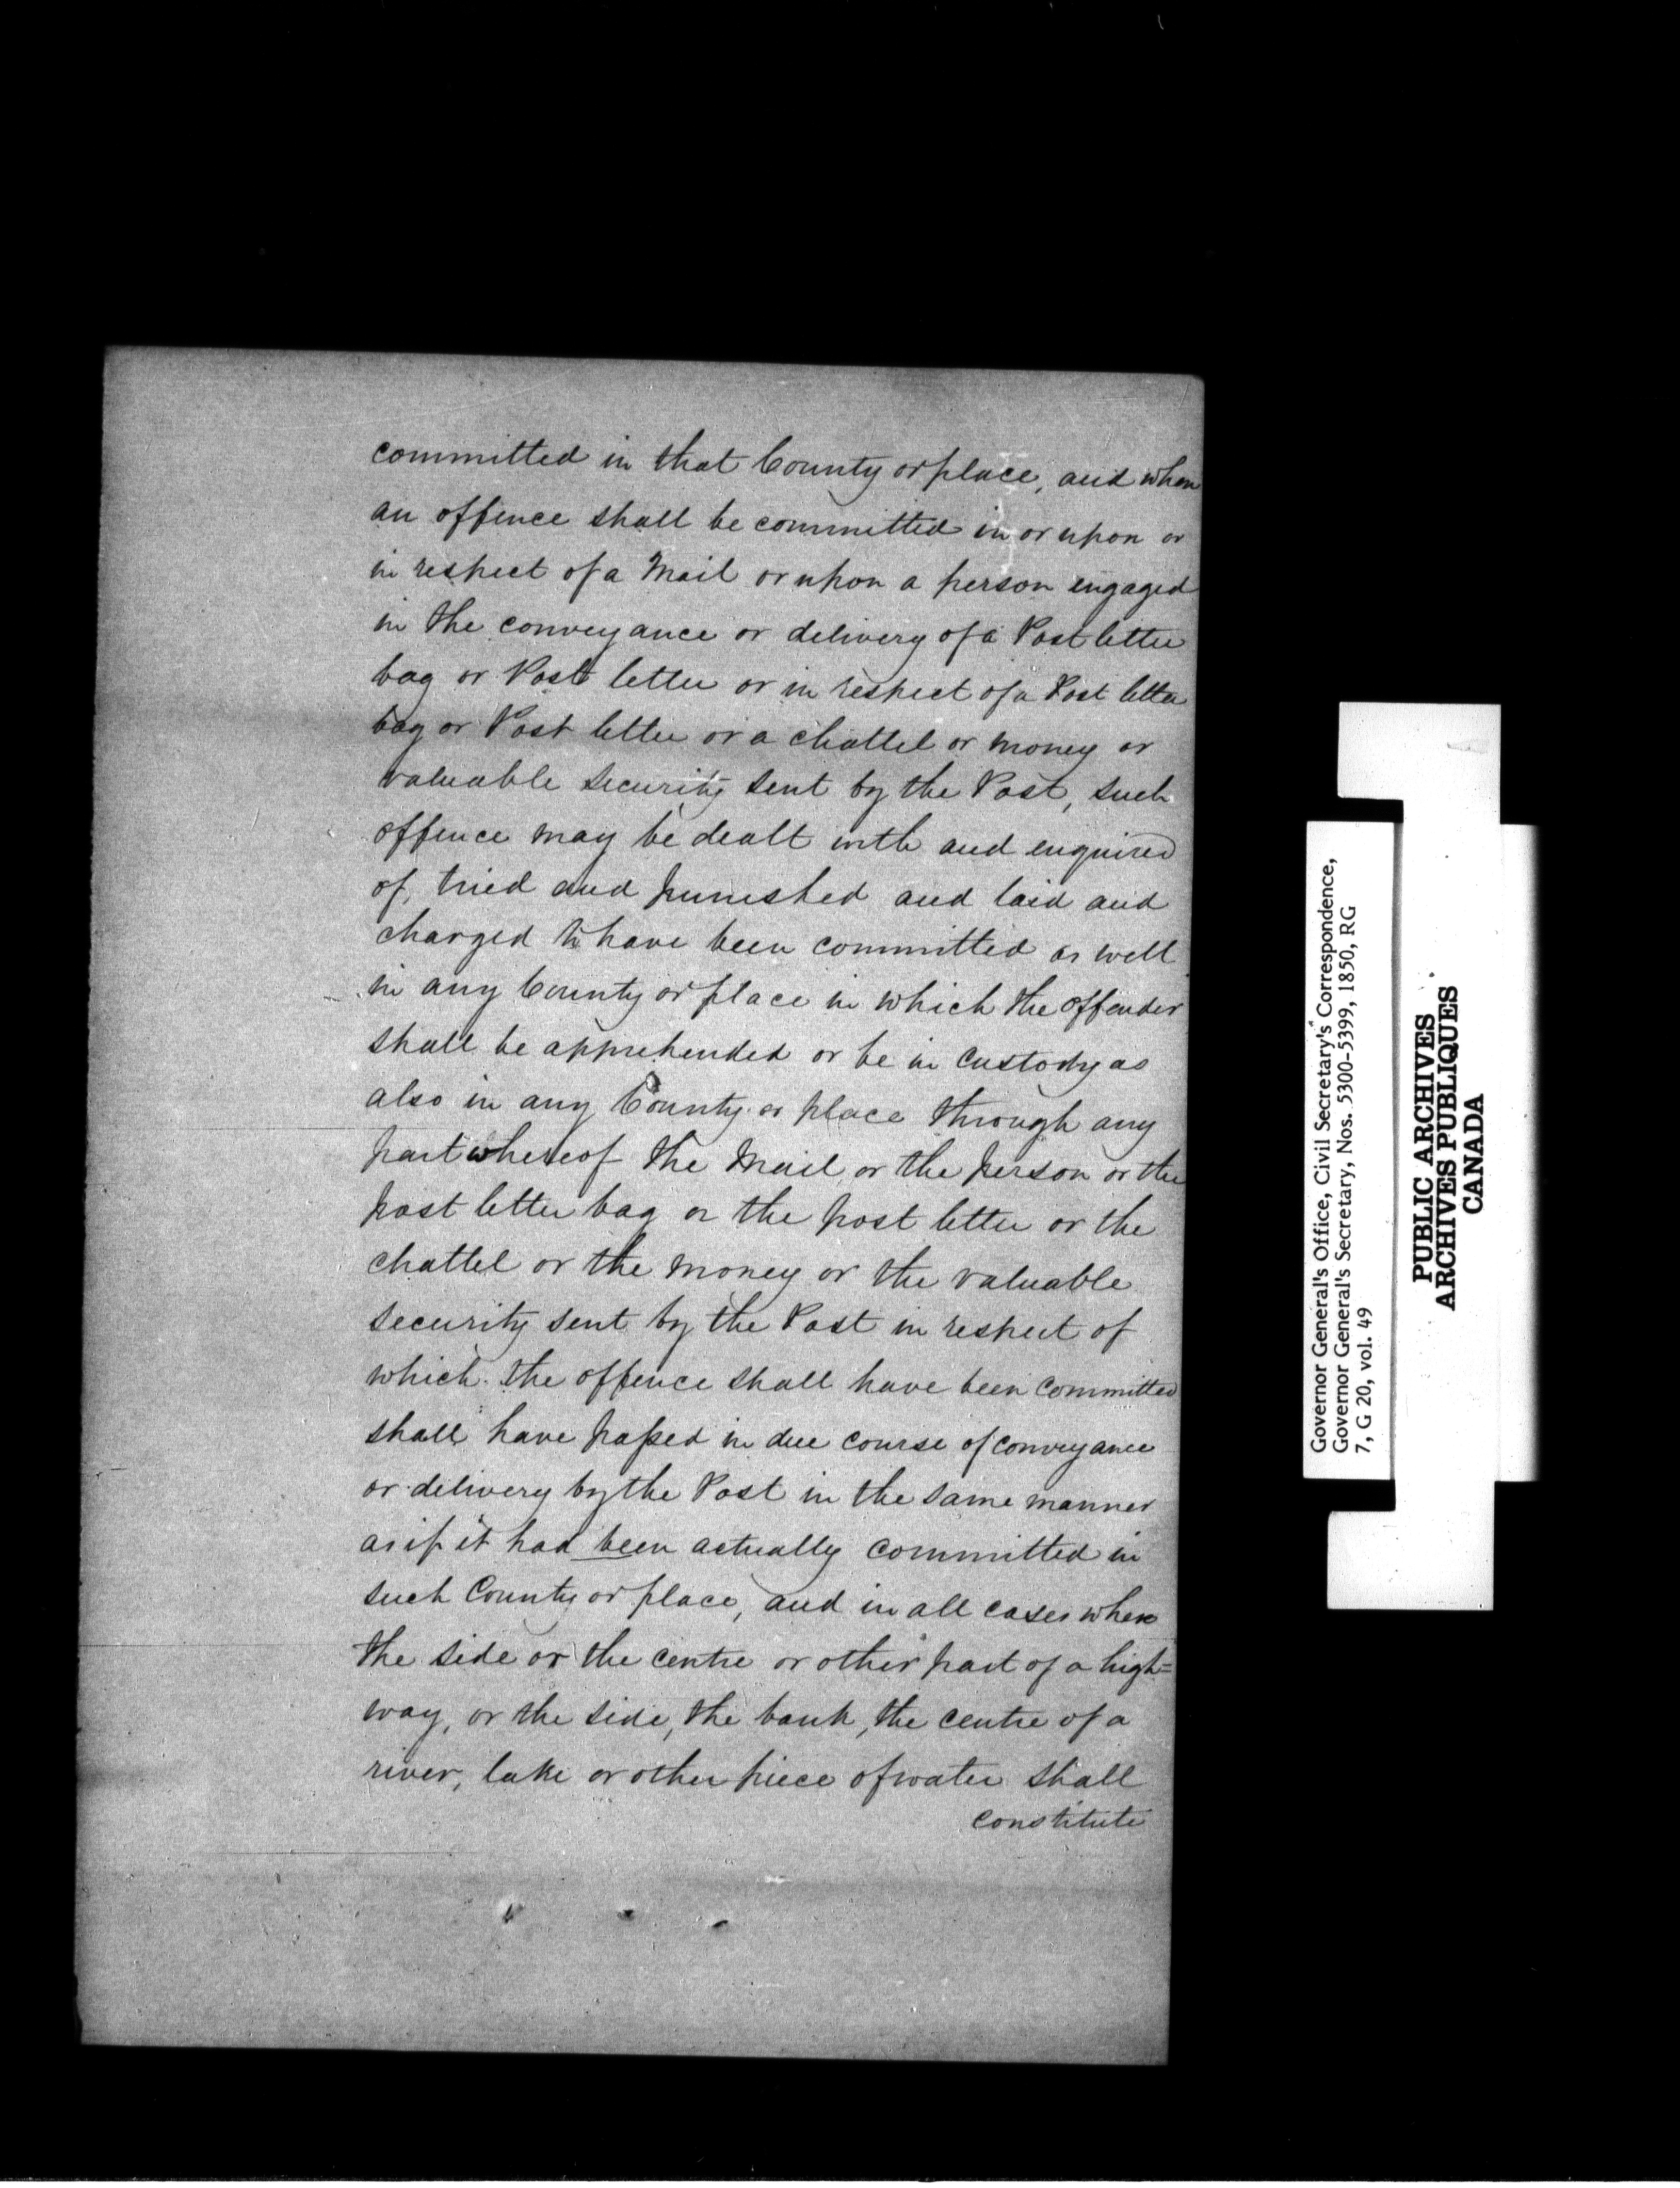 committed in that County or place, and when
an offence shall be committed in or upon or
in respect of a Mail or upon a person engaged
in the conveyance or delivery of a Post letter
bag or Post letter or in respect of a Post letter
bag or Post letter or a chattel or money or
valuable security sent by the Post, such
offence may be dealt with and enquired
of, tried and punished and laid and
charged to have been committed as well
in any County or place in which the offender
shall be apprehended or be in custody as
also in any County or place through any
part whereof the Mail or the person or the
post letter bag or the post letter or the
chattel or the money or the valuable
security sent by the Post in respect of
which the offence shall have been committed
shall have passed in due course of conveyance
or delivery by the Post in the same manner
as if it had been actually committed in
such County or place, and in all cases where
the side or the centre or other part of a high=
way, or the side, the bank, the centre of a
river, lake or other piece of water shall
constitute
Governor General's Office, Civil Secretary's Correspondence,
Governor General's Secretary, Nos. 5300-5399, 1850, RG
7, G 20, vol. 49
PUBLIC ARCHIVES
ARCHIVES PUBLIQUES
CANADA